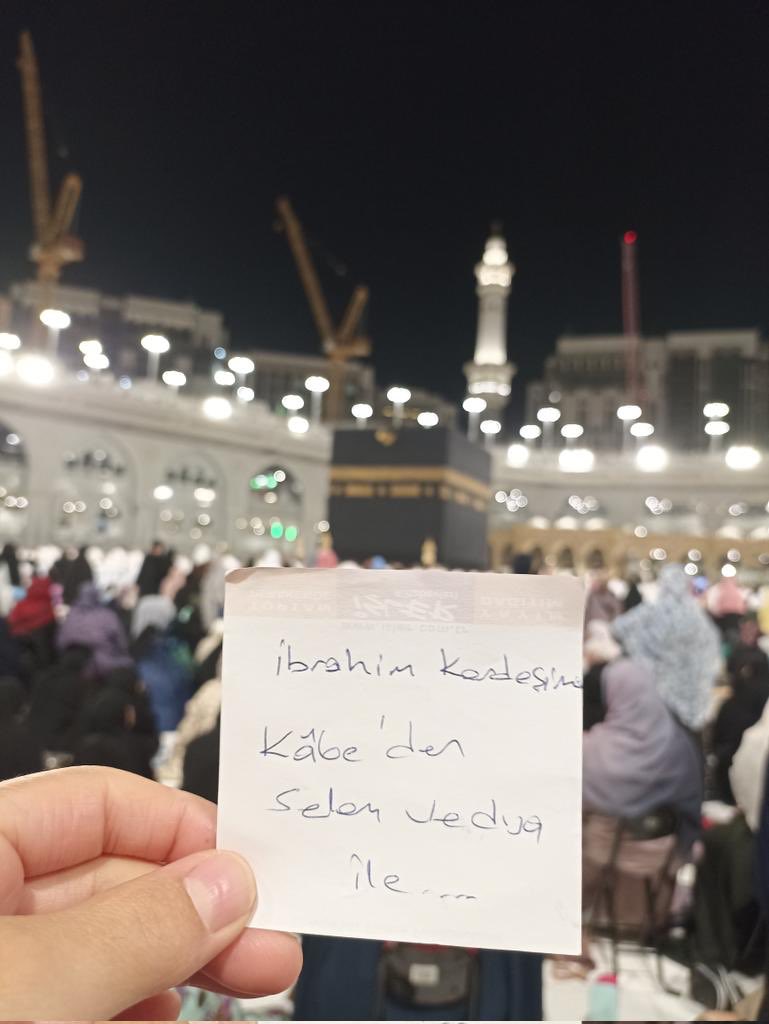 İbrahim Kardeşime
Kâbe'den
Selam ve dua
ile....